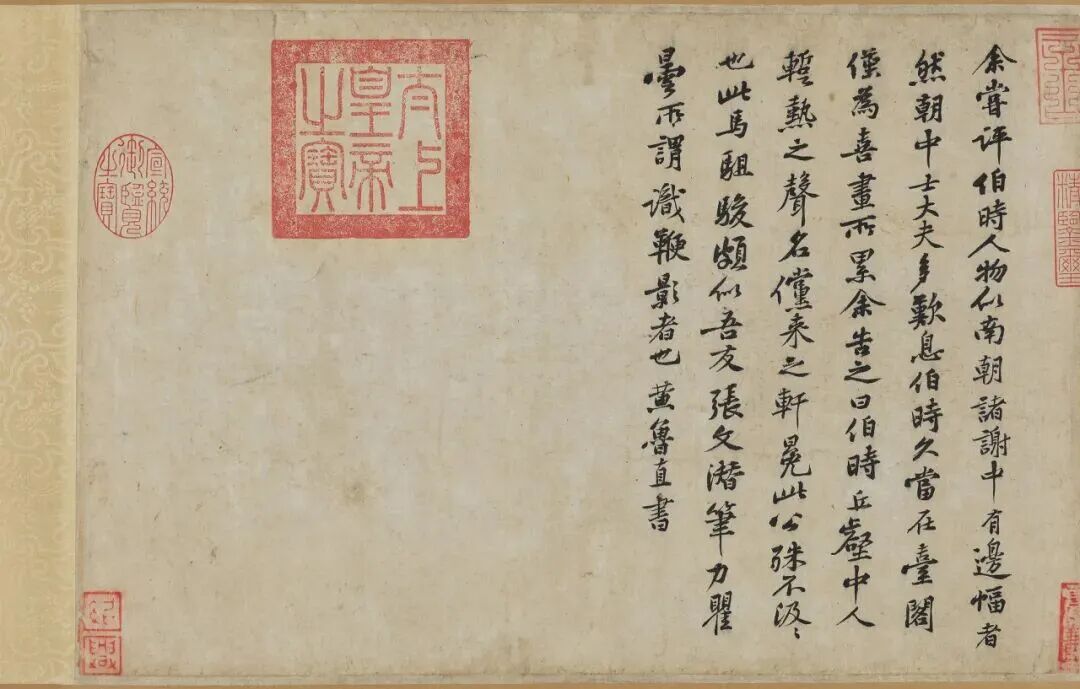 余嘗評伯時人物似南朝諸謝中有邊幅者
然朝中士大夫多歎息伯時久當在臺閣
僅為喜畫所累余告之曰伯時丘壑中人
暫熱之聲名儻来之軒冕此公殊不汲〻
也此馬駔駿頗似吾友張文潜筆力瞿
曇所謂識鞭影者也黃魯直書
太上皇帝之寶
宣統御覽之寶
紹興